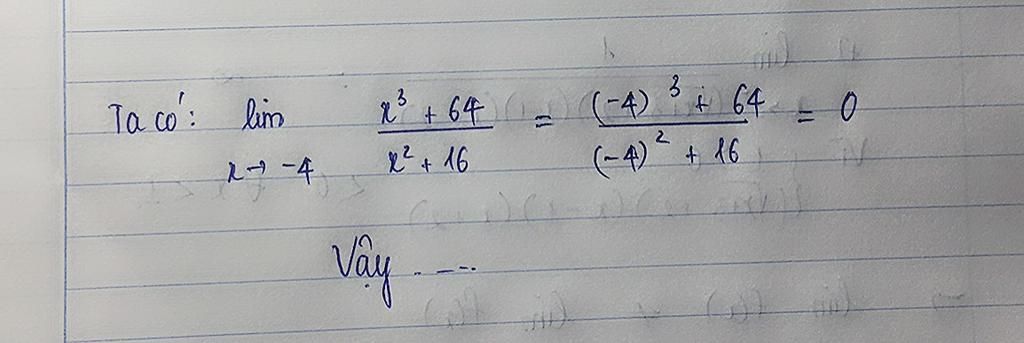 Ta có: lim x→ -4 (x³ + 64)/(x² + 16) = ((-4)³ + 64)/((-4)² + 16) = 0
Vậy .---